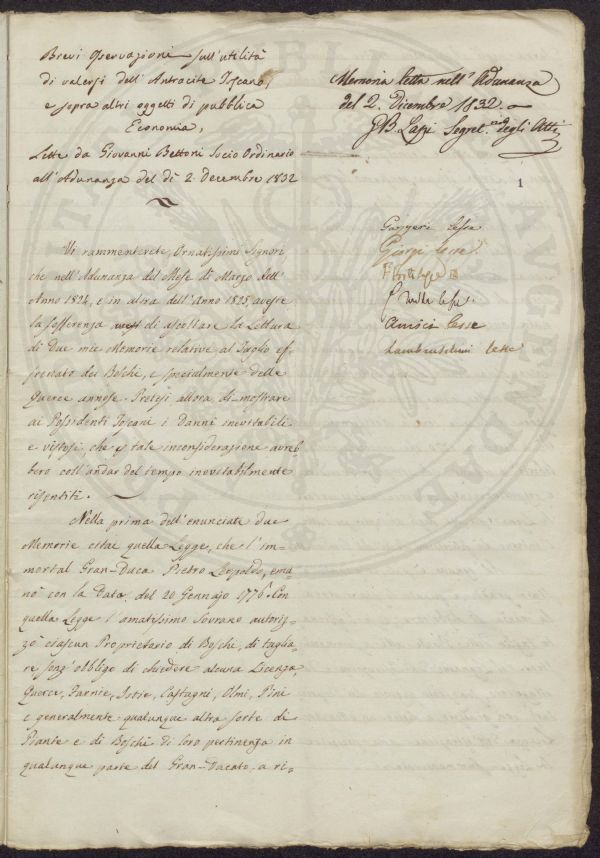 Brevi Osservazioni sull'utilità
di valersi dell'Antracite Toscano,
e sopra altri oggetti di pubblica
Economia,
Lette da Giovanni Bettoni Socio Ordinario
all'Adunanza del dì 2. Decembre 1832
Memoria letta nell'Adunanza
del 2. Dicembre 1832.
GB Lapi Segret.rio degli Atti
1
Gazzeri lesse
Giorgi lesse
lesse
Amici lesse
Lambruschini lesse
Vi rammenterete, Ornatissimi Signori
che nell'Adunanza del Mese di Marzo dell'
Anno 1824, e in altra dell'Anno 1825, aveste
la sofferenza di ascoltare la Lettura
di Due mie Memorie relative al Taglio ef-
frenato dei Boschi, e specialmente delle
Querce annose. Pretesi allora di mostrare
ai Possidenti Toscani i Danni inevitabili
e vistosi, che p tale inconsiderazione avreb
bero coll'andar del tempo inevitabilmente
risentiti.
Nella prima dell'enunciate due
Memorie citai quella Legge, che l'im-
mortal Gran-Duca Pietro Leopoldo, ema
nò con la Data del 20 Gennajo 1776. Con
quella Legge l'amatissimo Sovrano autoriz-
zò ciascun Proprietario di Boschi, di taglia-
re senz'obbligo di chiedere alcuna Licenza,
Querce, Farnie, Ischie, Castagni, Olmi, Pini
e generalmente qualunque altra sorte di
Piante e di Boschi di loro pertinenza in
qualunque parte del Gran-Ducato, a ri-